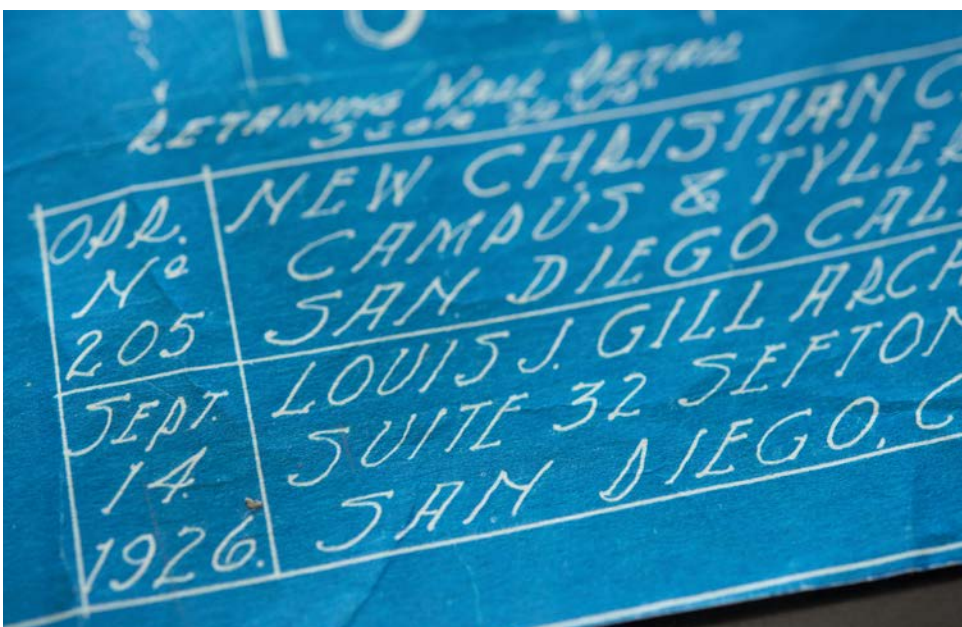 RETAINING WALL DETAIL
OPR.
Nº
205
NEW CHRISTIAN C
CAMPUS & TYLER
SAN DIEGO CAL.
SEPT.
14
1926.
LOUIS J. GILL ARCH
SUITE 32 SEFTON
SAN DIEGO. C